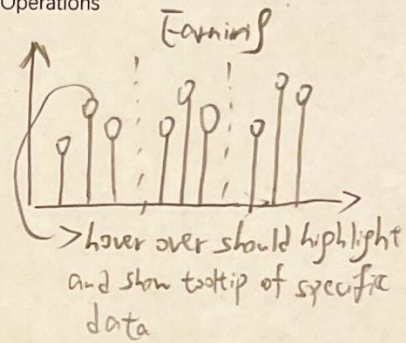 Operations
Earning
hover over should highlight
and show tooltip of specific
data